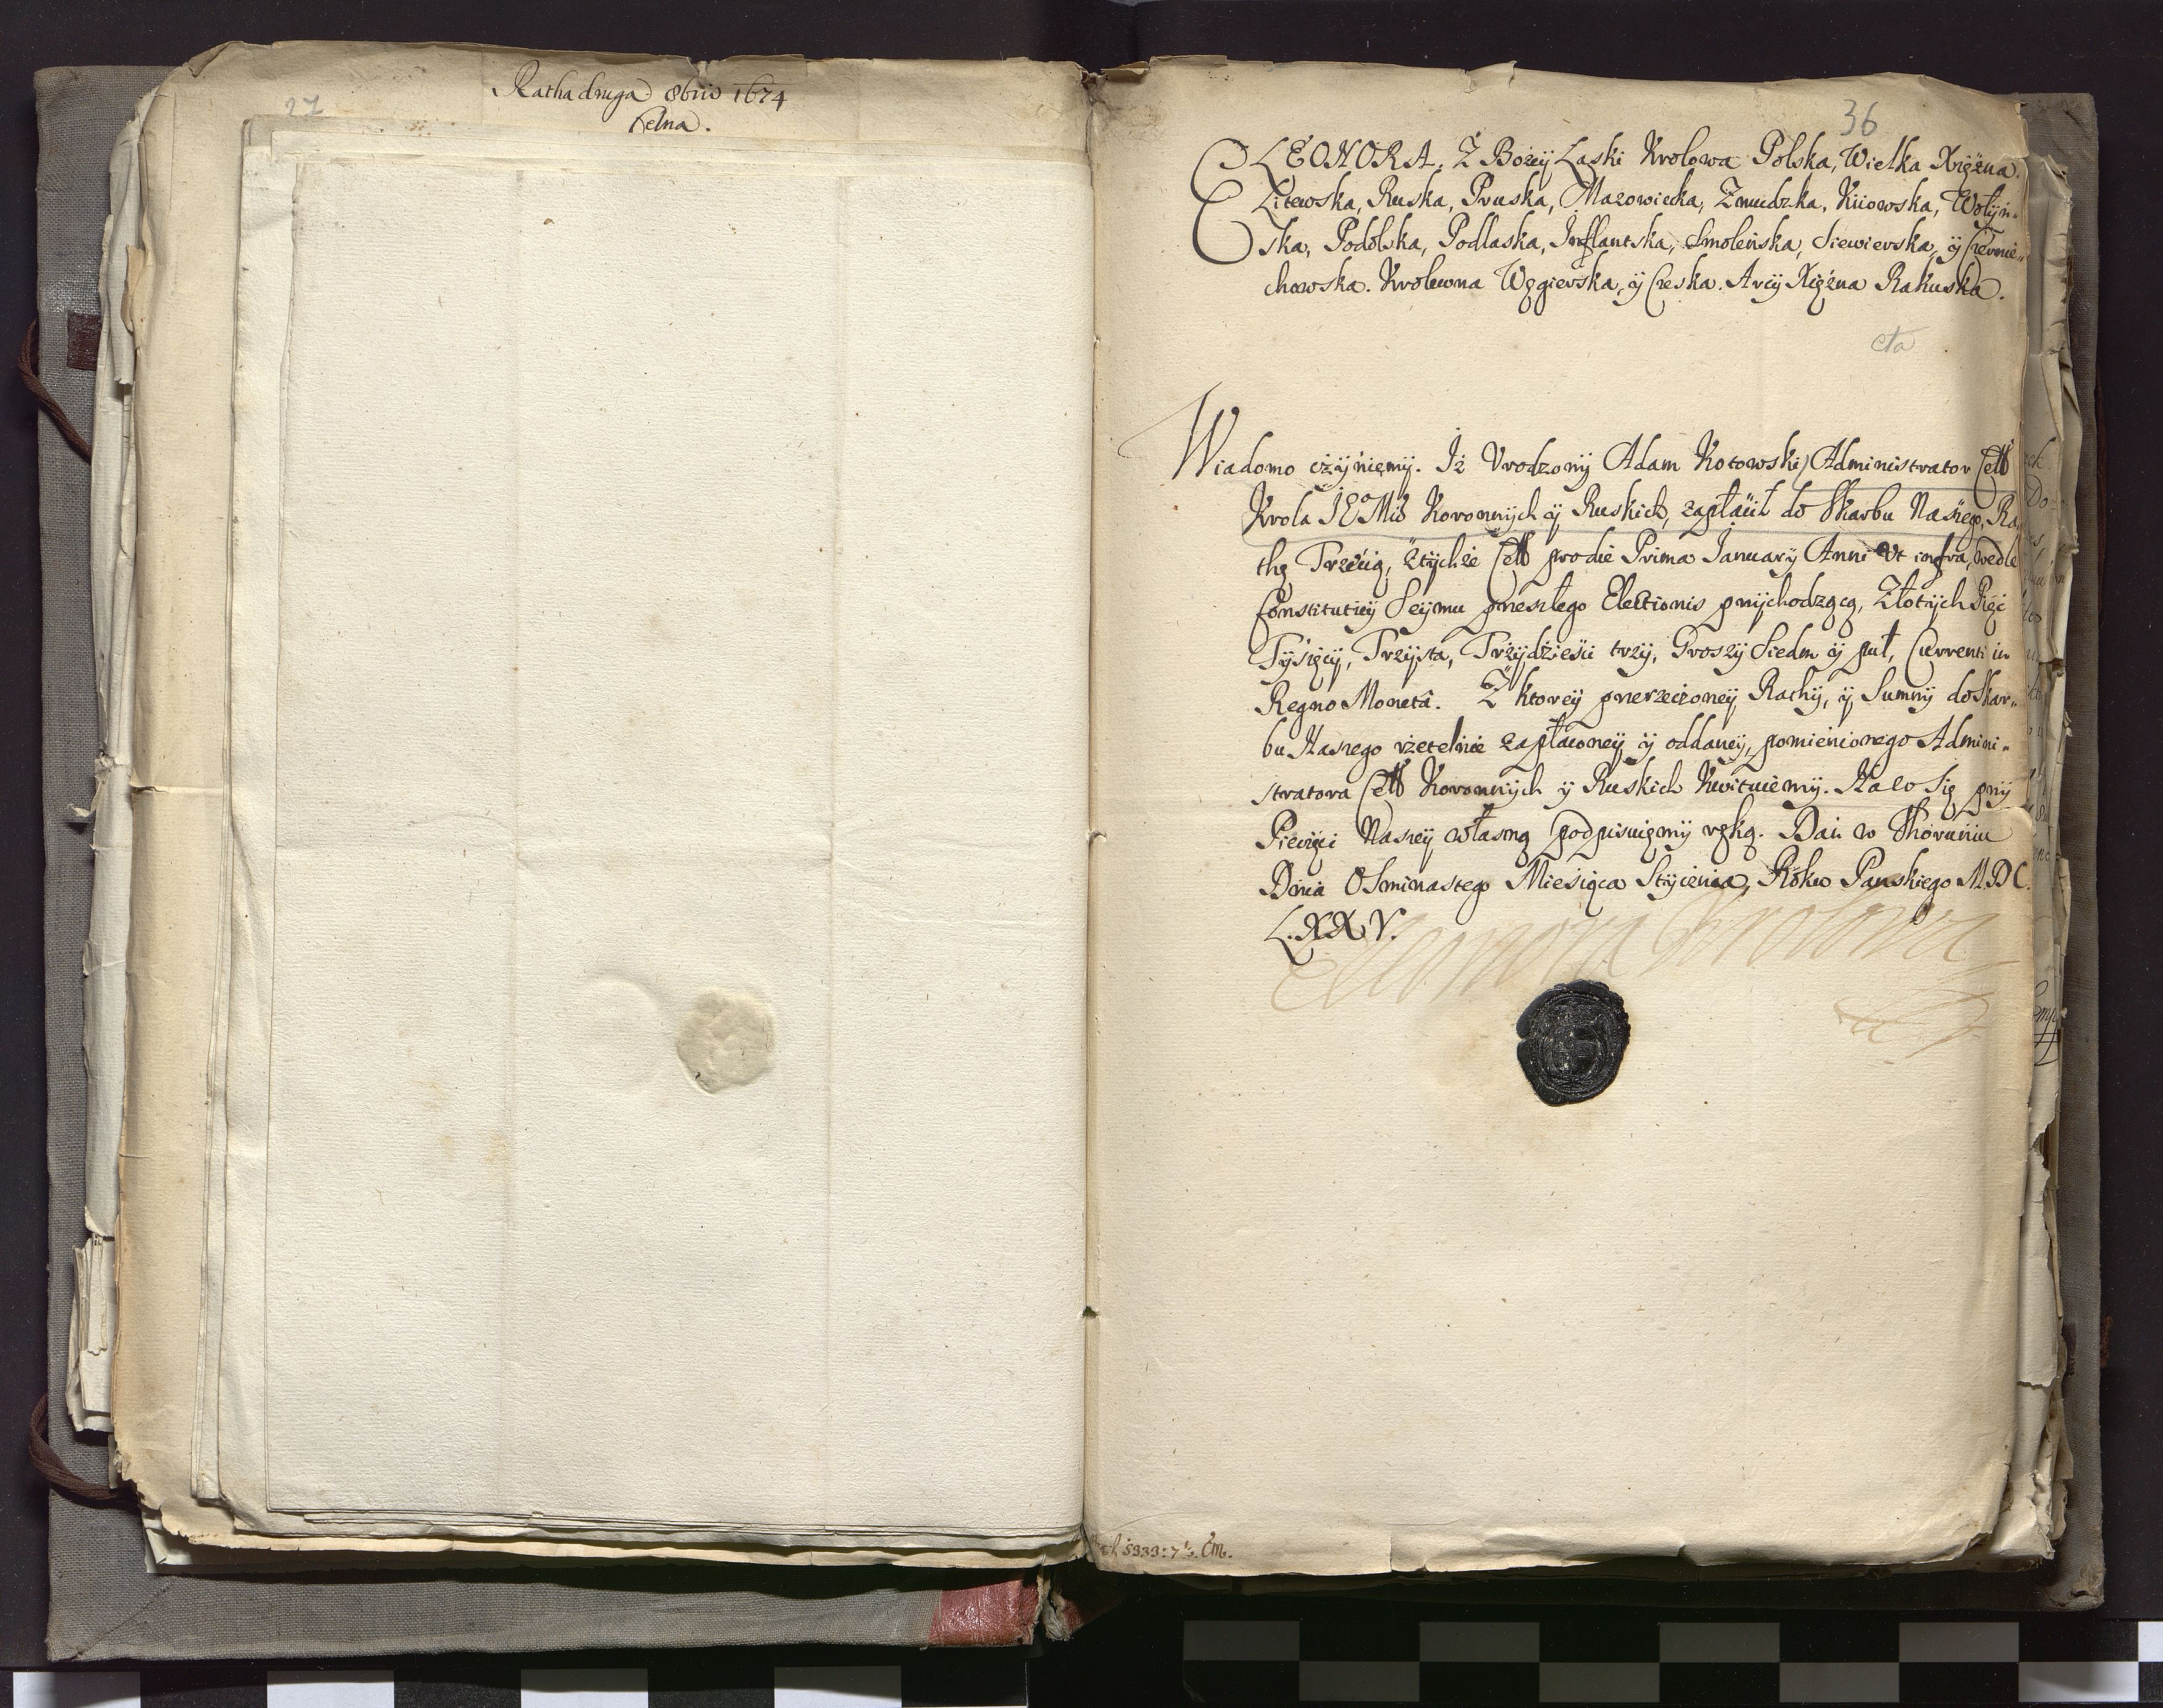 Ratha druga 8bris 1674
Celna.
27
36
ELEONORA, Z Bozey Łaski Krolowa Polska, Wielka Xiężna
Litewska, Ruska, Pruska, Mazowiecka, Zmudzka, Kiiowska, Wołyn„
ska, Podolska, Podlaska, Inflantska, Smolenska, Siewierska, ÿ Czernie„
chowska. Krolewna Węgierska, ÿ Czeska. Arcÿ Xiężna Rakuska.
cła
Wiadomo czÿniemÿ. Iż Vrodzonÿ Adam Kotowski Administrator Cełł
Krola JEoMsci Koronnÿch ÿ Ruskich, zapłaćił do Skarbu Naszego, Ra„
thę Trzećią, ztÿchże Cełł pro die Prima Januarÿ Anni Vt infra, wedle
Constitutieÿ Seÿmu przeszłego Electionis przÿchodzącą, Złotÿch Pięć
Tÿsięcÿ, Trzÿsta, Trzÿdzieśći trzÿ, Groszÿ Siedm ÿ puł, Currenti in
Regno Monetâ. Z ktoreÿ przerzeczoneÿ Rathÿ, ÿ Summÿ do Skar„
bu Naszego rzetelnie zapłaconeÿ ÿ oddaneÿ, pomienionego Admini„
stratora Cełł Koronnÿch ÿ Ruskich Kwituiemÿ. Na co się przÿ
Pieczęći Naszeÿ własną podpisuięmÿ ręką. Dan w Thoruniu
Dnia Osminastego Mieśiąca Stÿcznia, Roku Panskiego M.D.C.
L.XX.V.
Eleonora Krolowa
fl 5333:7½. Cm.